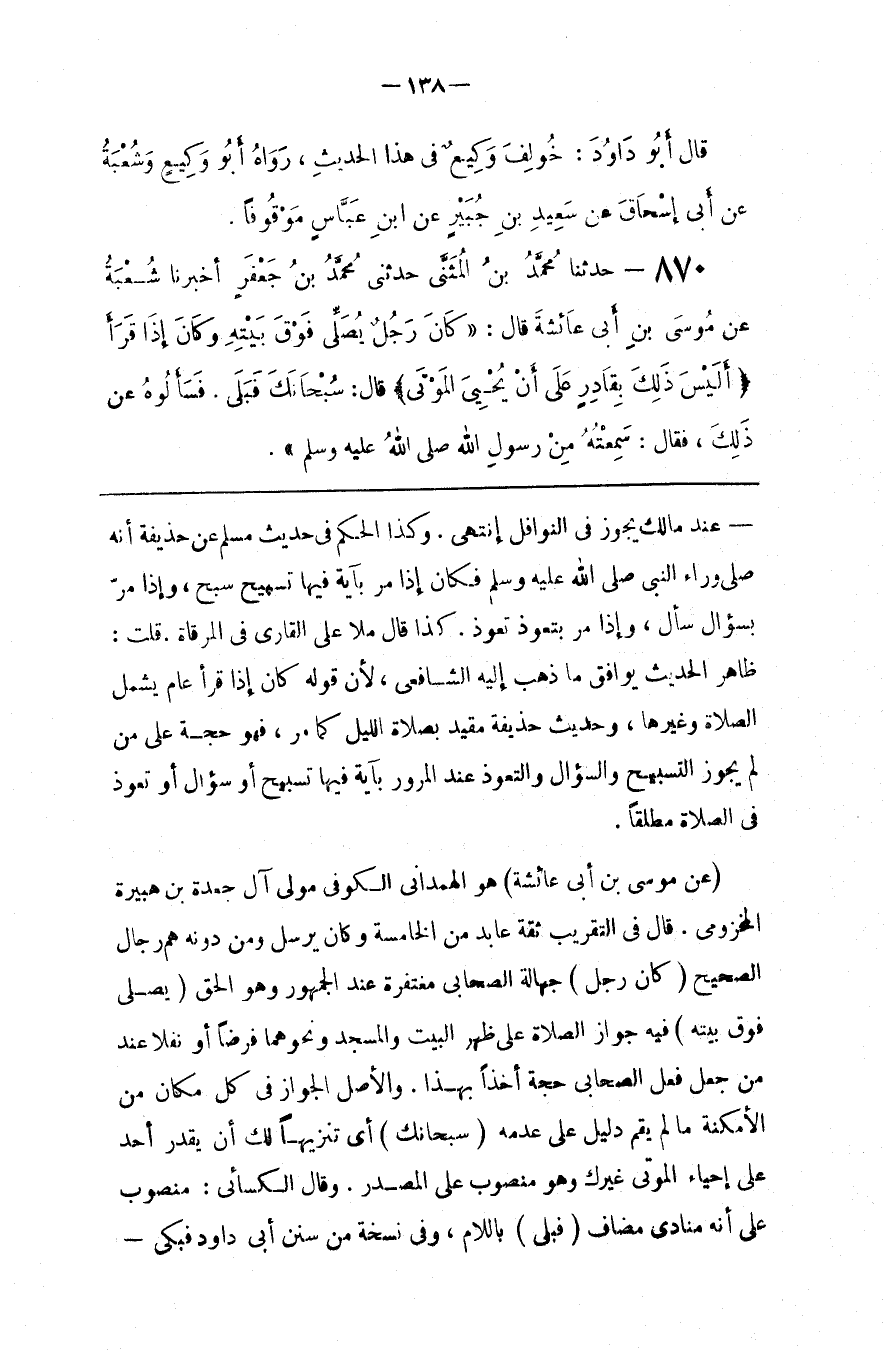 — ١٣٨ —
قال أَبُو دَاوُدَ : خُولِفَ وَكِيعٌ فى هذا الحديثِ ، رَوَاهُ أَبُو وَكِيعٍ وَشُعْبَةُ
عن أَبى إسْحاقَ عن سَعِيدِ بنِ جُبَيْرٍ عن ابنِ عَبَّاسٍ مَوْقُوفاً .
٨٧٠ — حدثنا مُحمَّدُ بنُ المُثَنَّى حدثنى مُحمَّدُ بنُ جَعْفَرٍ أخبرنا شُعْبَةُ
عن مُوسَى بنِ أَبى عَائشةَ قال : « كَانَ رَجُلٌ يُصَلِّى فَوْقَ بَيْتِهِ وكَانَ إذَا قَرَأَ
﴿ أَلَيْسَ ذَلِكَ بِقَادِرٍ عَلَى أَنْ يُحْيِىَ المَوْتَى﴾ قال: سُبْحَانَكَ فَبَلَى . فَسَأَلُوهُ عن
ذَلِكَ ، فقال : سَمِعْتُهُ مِنْ رسولِ الله صلى اللهُ عليه وسلم » .
— عند مالك يجوز فى النوافل إنتهى . وكذا الحكم فى حديث مسلم عن حذيفة أنه
صلى وراء النبى صلى الله عليه وسلم فكان إذا مر بآية فيها تسبيح سبح ، وإذا مرّ
بسؤال سأل ، وإذا مر بتعوذ تعوذ . كذا قال ملا على القارى فى المرقاة . قلت :
ظاهر الحديث يوافق ما ذهب إليه الشافعى ، لأن قوله كان إذا قرأ عام يشمل
الصلاة وغيرها ، وحديث حذيفة مقيد بصلاة الليل كما مر ، فهو حجة على من
لم يجوز التسبيح والسؤال والتعوذ عند المرور بآية فيها تسبيح أو سؤال أو تعوذ
فى الصلاة مطلقاً .
(عن موسى بن أبى عائشة) هو الهمدانى الكوفى مولى آل جعدة بن هبيرة
المخزومى . قال فى التقريب ثقة عابد من الخامسة وكان يرسل ومن دونه هم رجال
الصحيح ( كان رجل ) جهالة الصحابى مغتفرة عند الجمهور وهو الحق ( يصلى
فوق بيته ) فيه جواز الصلاة على ظهر البيت والمسجد ونحوهما فرضاً أو نفلا عند
من جعل فعل الصحابى حجة أخذاً بهذا . والأصل الجواز فى كل مكان من
الأمكنة ما لم يقم دليل على عدمه ( سبحانك ) أى تنزيهاً لك أن يقدر أحد
على إحياء الموتى غيرك وهو منصوب على المصدر . وقال الكسائى : منصوب
على أنه منادى مضاف ( فبلى ) باللام ، وفى نسخة من سنن أبى داود فبكى —